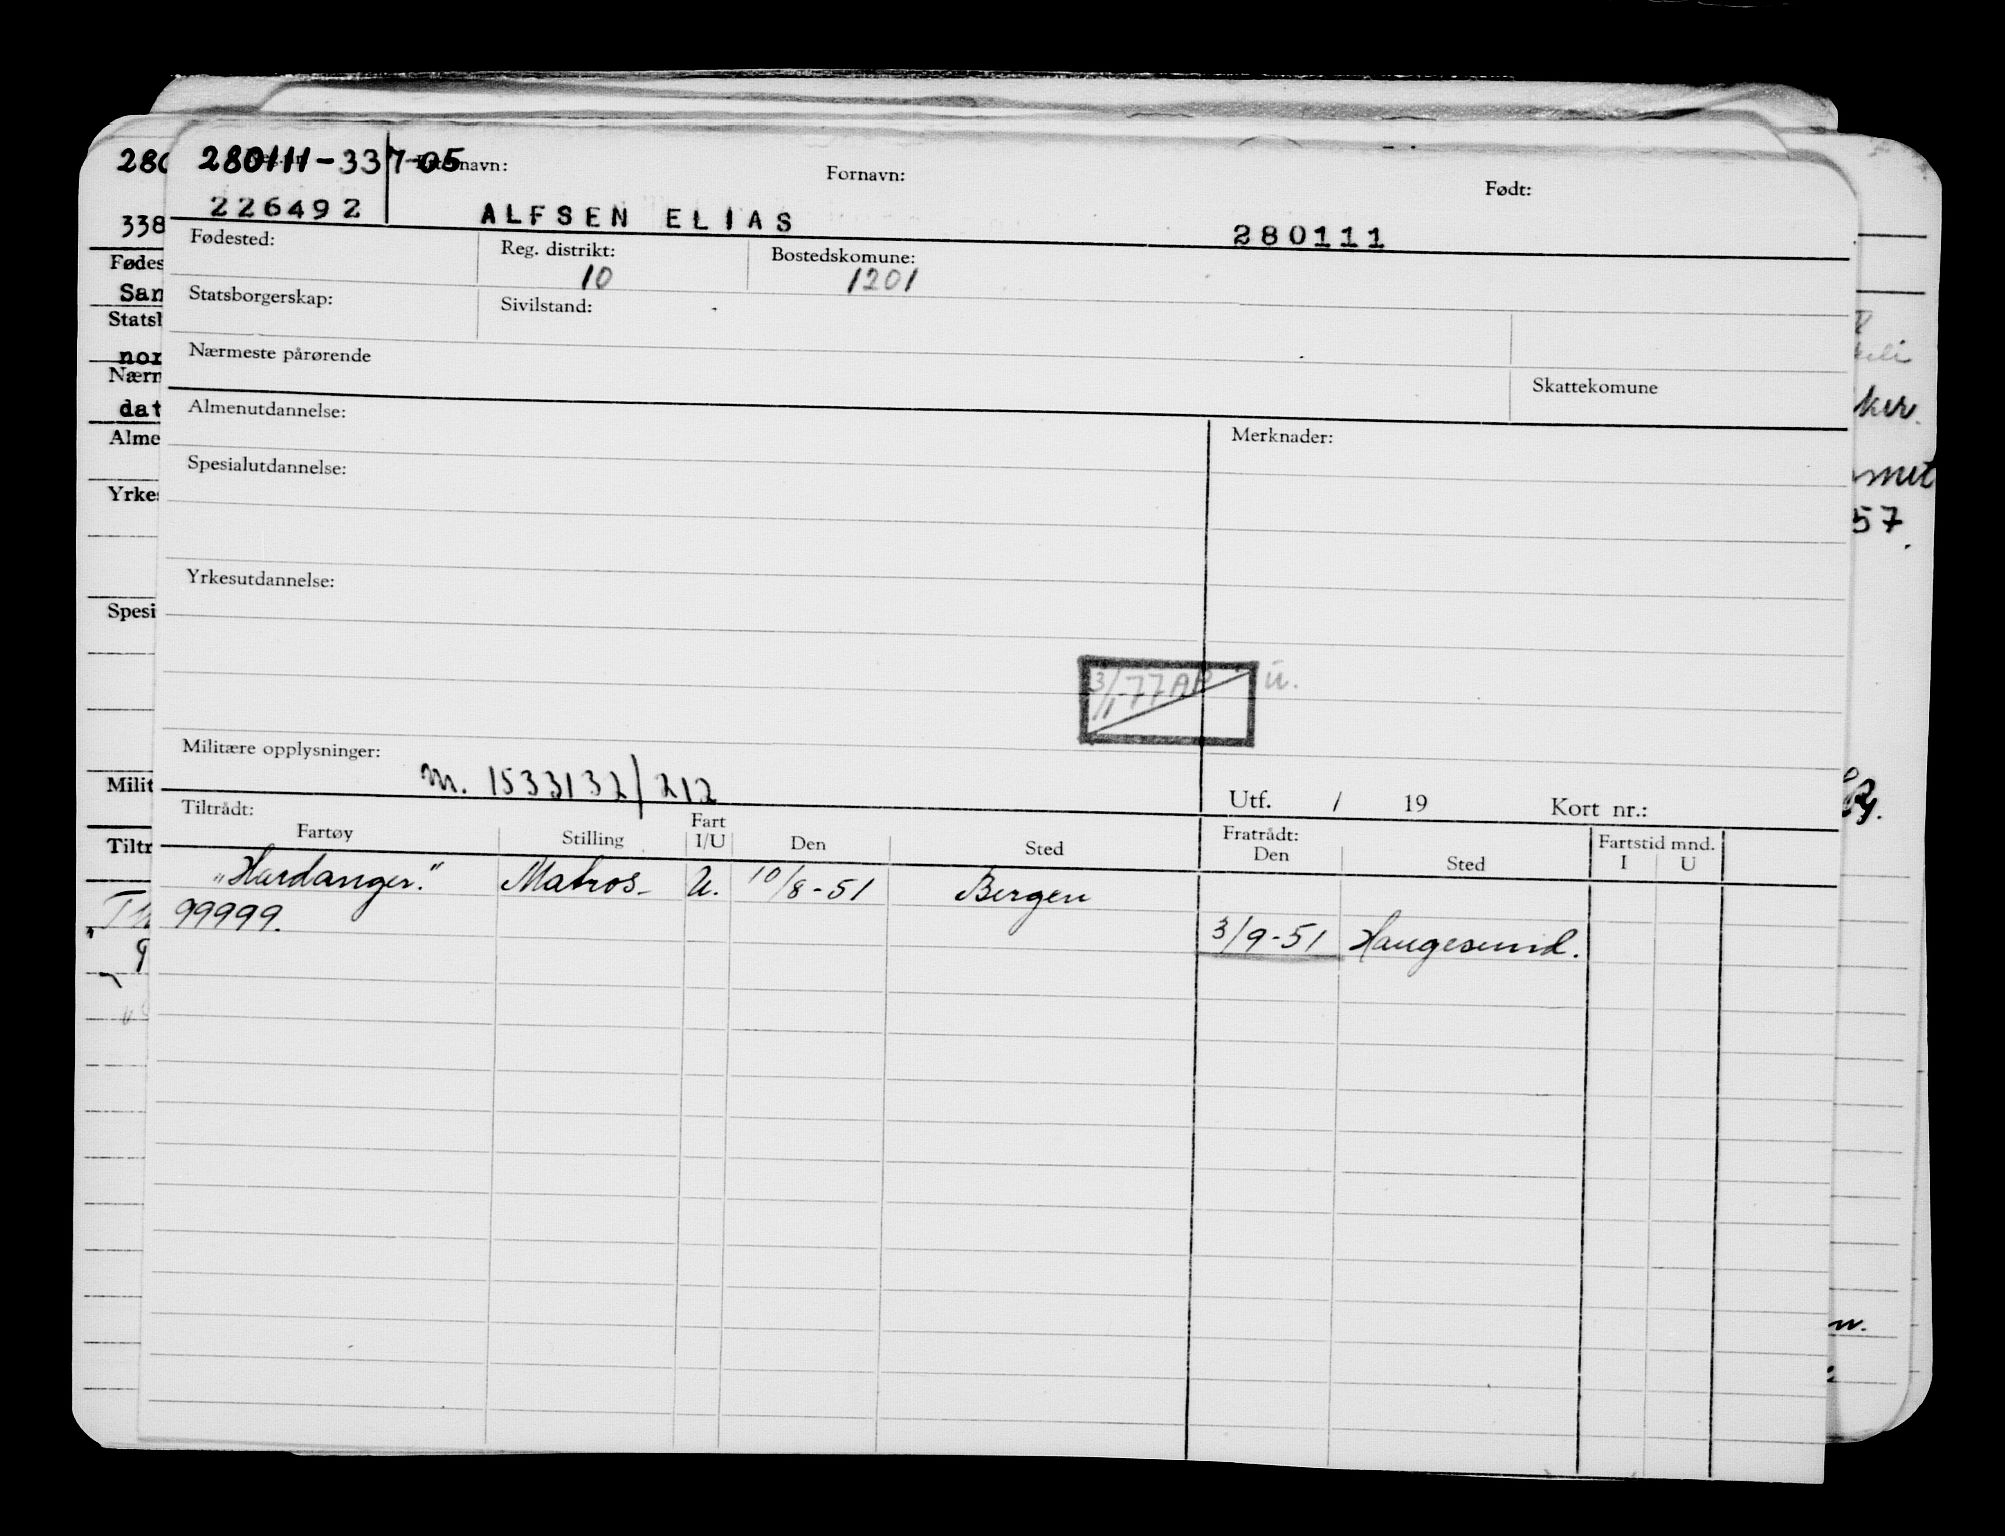 280111-337-05 Etternavn: Fornavn: Født:
226492 ALFSEN ELIAS 280111
Fødested: Reg. distrikt: 10 Bostedskomune: 1201
Statsborgerskap: Sivilstand:
Nærmeste pårørende
Skattekomune
Almenutdannelse: Merknader:
Spesialutdannelse:
Yrkesutdannelse:
3/1-77 AP u.
Militære opplysninger: m. 1533132/212
Utf. / 19 Kort nr.:
Tiltrådt: Fratrådt: Fartstid mnd.
Fartøy Stilling Fart I/U Den Sted Den Sted I U
"Hardanger." Matros- U. 10/8-51 Bergen
99999. 3/9-51 Haugesund.
280
338
Fødes
San
Statsb
nor
Nærn
dat
Alme
Yrkes
Spesi
Milit
Tiltr
57.